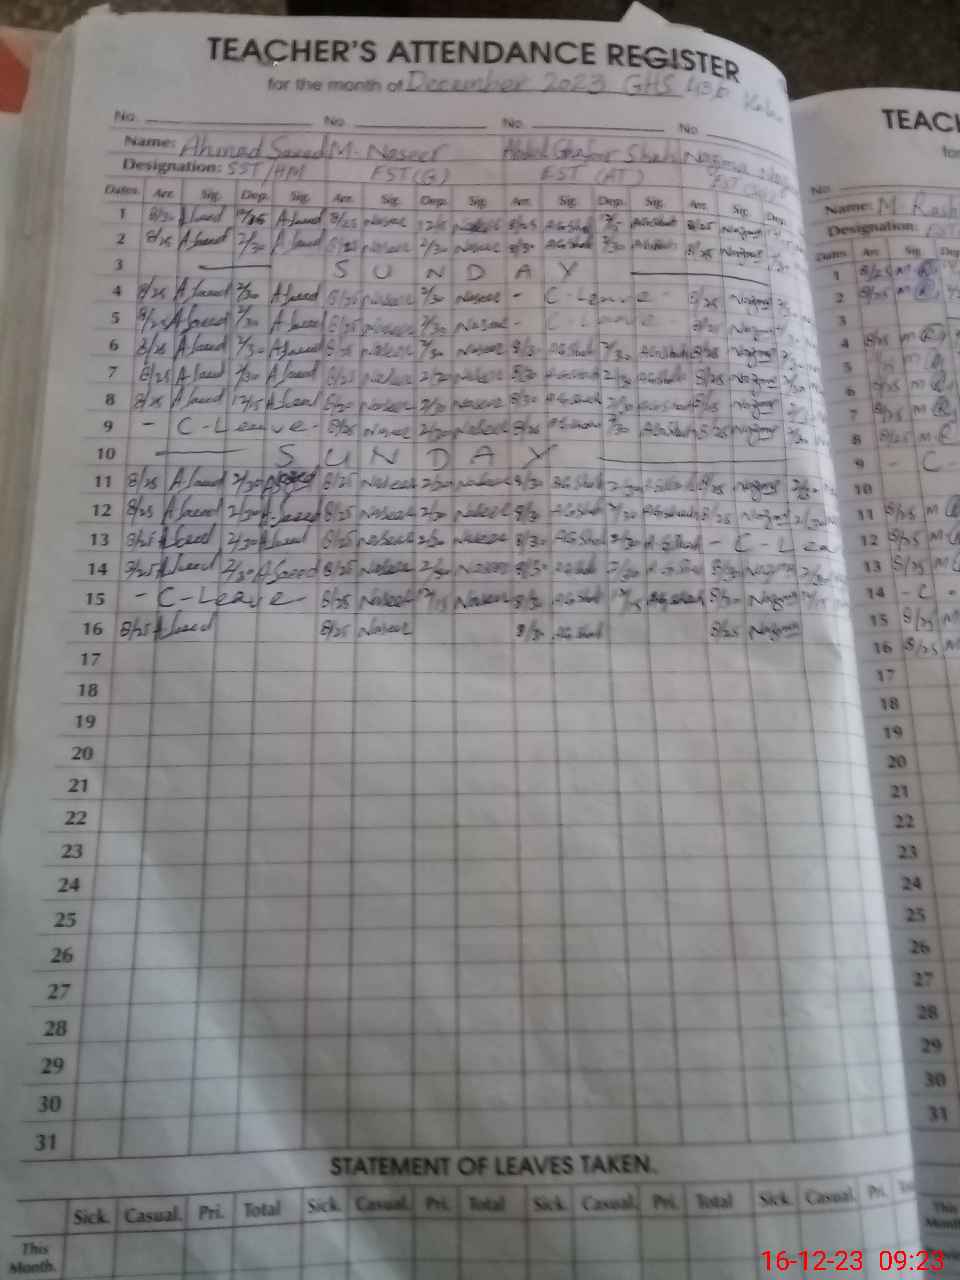 TEACHER'S ATTENDANCE REGISTER
for the month of December 2023 GHS
No. No. No. No.
Name: Ahmad Saeed M. Naseer Abdul Gafor Shah Nazma
Designation: SST/HM EST(G) EST (AT)
Dates. Arr. Sig. Dep. Sig. Arr. Sig. Dep. Sig. Arr. Sig. Dep. Sig. Arr. Sig. Dep.
1 8/30 A Saeed A Saeed 8/25 Naseer 12/15 Naseer 8/25 AG Shah AG Shah 8/25
2 8/25 A Saeed 2/30 A Saeed Naseer 2/30 Naseer 8/30 AG Shah 2/30 AG Shah 8/25
3 SUNDAY
4 8/25 A Saeed 2/30 A Saeed 8/25 Naseer 2/30 Naseer - C-Leave - 8/25
5 8/25 A Saeed 2/30 A Saeed 8/25 Naseer 2/30 Naseer - C-Leave - 8/25
6 8/25 A Saeed 2/30 A Saeed 8/25 Naseer 2/30 Naseer 8/30 AG Shah 2/30 AG Shah 8/25
7 8/25 A Saeed 2/30 A Saeed 8/25 Naseer 2/30 Naseer 8/30 AG Shah 2/30 AG Shah 8/25
8 8/25 A Saeed 12/15 A Saeed 8/20 Naseer 2/30 Naseer 8/30 AG Shah 2/30 AG Shah 8/25
9 - C-Leave - 8/25 Naseer 2/30 Naseer 8/25 AG Shah 2/30 AG Shah 8/25
10 SUNDAY
11 8/25 A Saeed 2/30 A Saeed 8/25 Naseer 2/30 Naseer 8/30 AG Shah 2/30 AG Shah 8/25 2/30
12 8/25 A Saeed 2/30 A Saeed 8/25 Naseer 2/30 Naseer 8/30 AG Shah 2/30 AG Shah 8/25 2/30
13 8/25 A Saeed 2/30 A Saeed 8/25 Naseer 2/30 Naseer 8/30 AG Shah 2/30 AG Shah - C-Lea
14 8/25 A Saeed 2/30 A Saeed 8/25 Naseer 2/30 Naseer 8/30 AG Shah 2/30 AG Shah 8/30
15 - C-Leave - 8/25 Naseer 12/15 Naseer 8/30 AG Shah 12/15 AG Shah 8/30
16 8/25 A Saeed 8/25 Naseer 8/30 AG Shah 8/25
17
18
19
20
21
22
23
24
25
26
27
28
29
30
31
STATEMENT OF LEAVES TAKEN.
Sick. Casual. Pri. Total Sick. Casual. Pri. Total Sick. Casual. Pri. Total Sick. Casual. Pri.
This Month.
TEACH
No.
Name: M. Rash
Designation: EST
Dates Arr. Sig. Dep
1 8/25 M
2 8/25 M
3
4 8/25 M
5
6 8/25 M
7 8/25 M
8 8/25 M
9 - C -
10
11 8/25 M
12 8/25 M
13 8/25 M
14 - C -
15 8/25 M
16 8/25 M
17
18
19
20
21
22
23
24
25
26
27
28
29
30
31
This Month
16-12-23 09:23